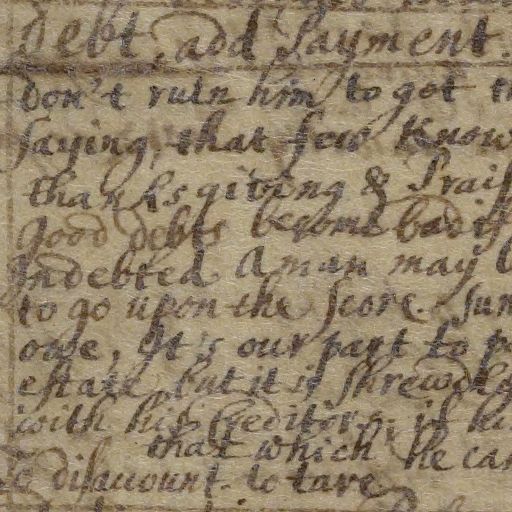 Debt, add Payment.
Don't ruin him to get th
saying, that few know
thanksgiving & Prais
Good debts become bad if
Indebted A man may b
to go upon the score. Sum
owe, It's our part to p
estate, but it is shrewdly
with his Creditors, if his
that which he can
disaccount. to tare